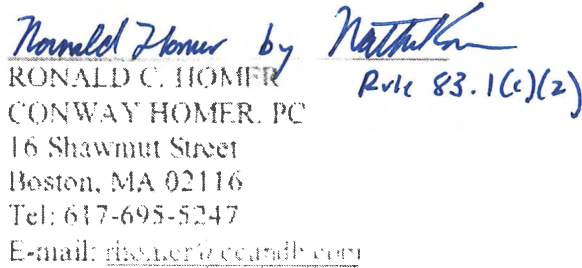 Ronald Homer by
RONALD C. HOMER Rule 83.1(c)(2)
CONWAY HOMER, PC
16 Shawmut Street
Boston, MA 02116
Tel: 617-695-5247
E-mail: